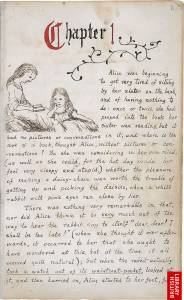 Chapter 1
Alice was beginning
to get very tired of sitting
by her sister on the bank,
and of having nothing to
do: once or twice she had
peeped into the book her
sister was reading, but it
had no pictures or conversations in it, and where is the
use of a book, thought Alice, without pictures or conver-
sations? So she was considering in her own mind,
(as well as she could, for the hot day made her
feel very sleepy and stupid,) whether the pleasure
of making a daisy-chain was worth the trouble of
getting up and picking the daisies, when a white
rabbit with pink eyes ran close by her.
There was nothing very remarkable in that,
nor did Alice think it so very much out of the
way to hear the rabbit say to itself "dear, dear! I
shall be too late!" (when she thought it over after-
wards, it occurred to her that she ought to
have wondered at this, but at the time it all
seemed quite natural); but when the rabbit actually
took a watch out of its waistcoat-pocket, looked
it, and then hurried on, Alice started to her feet, for
BRITISH
LIBRARY